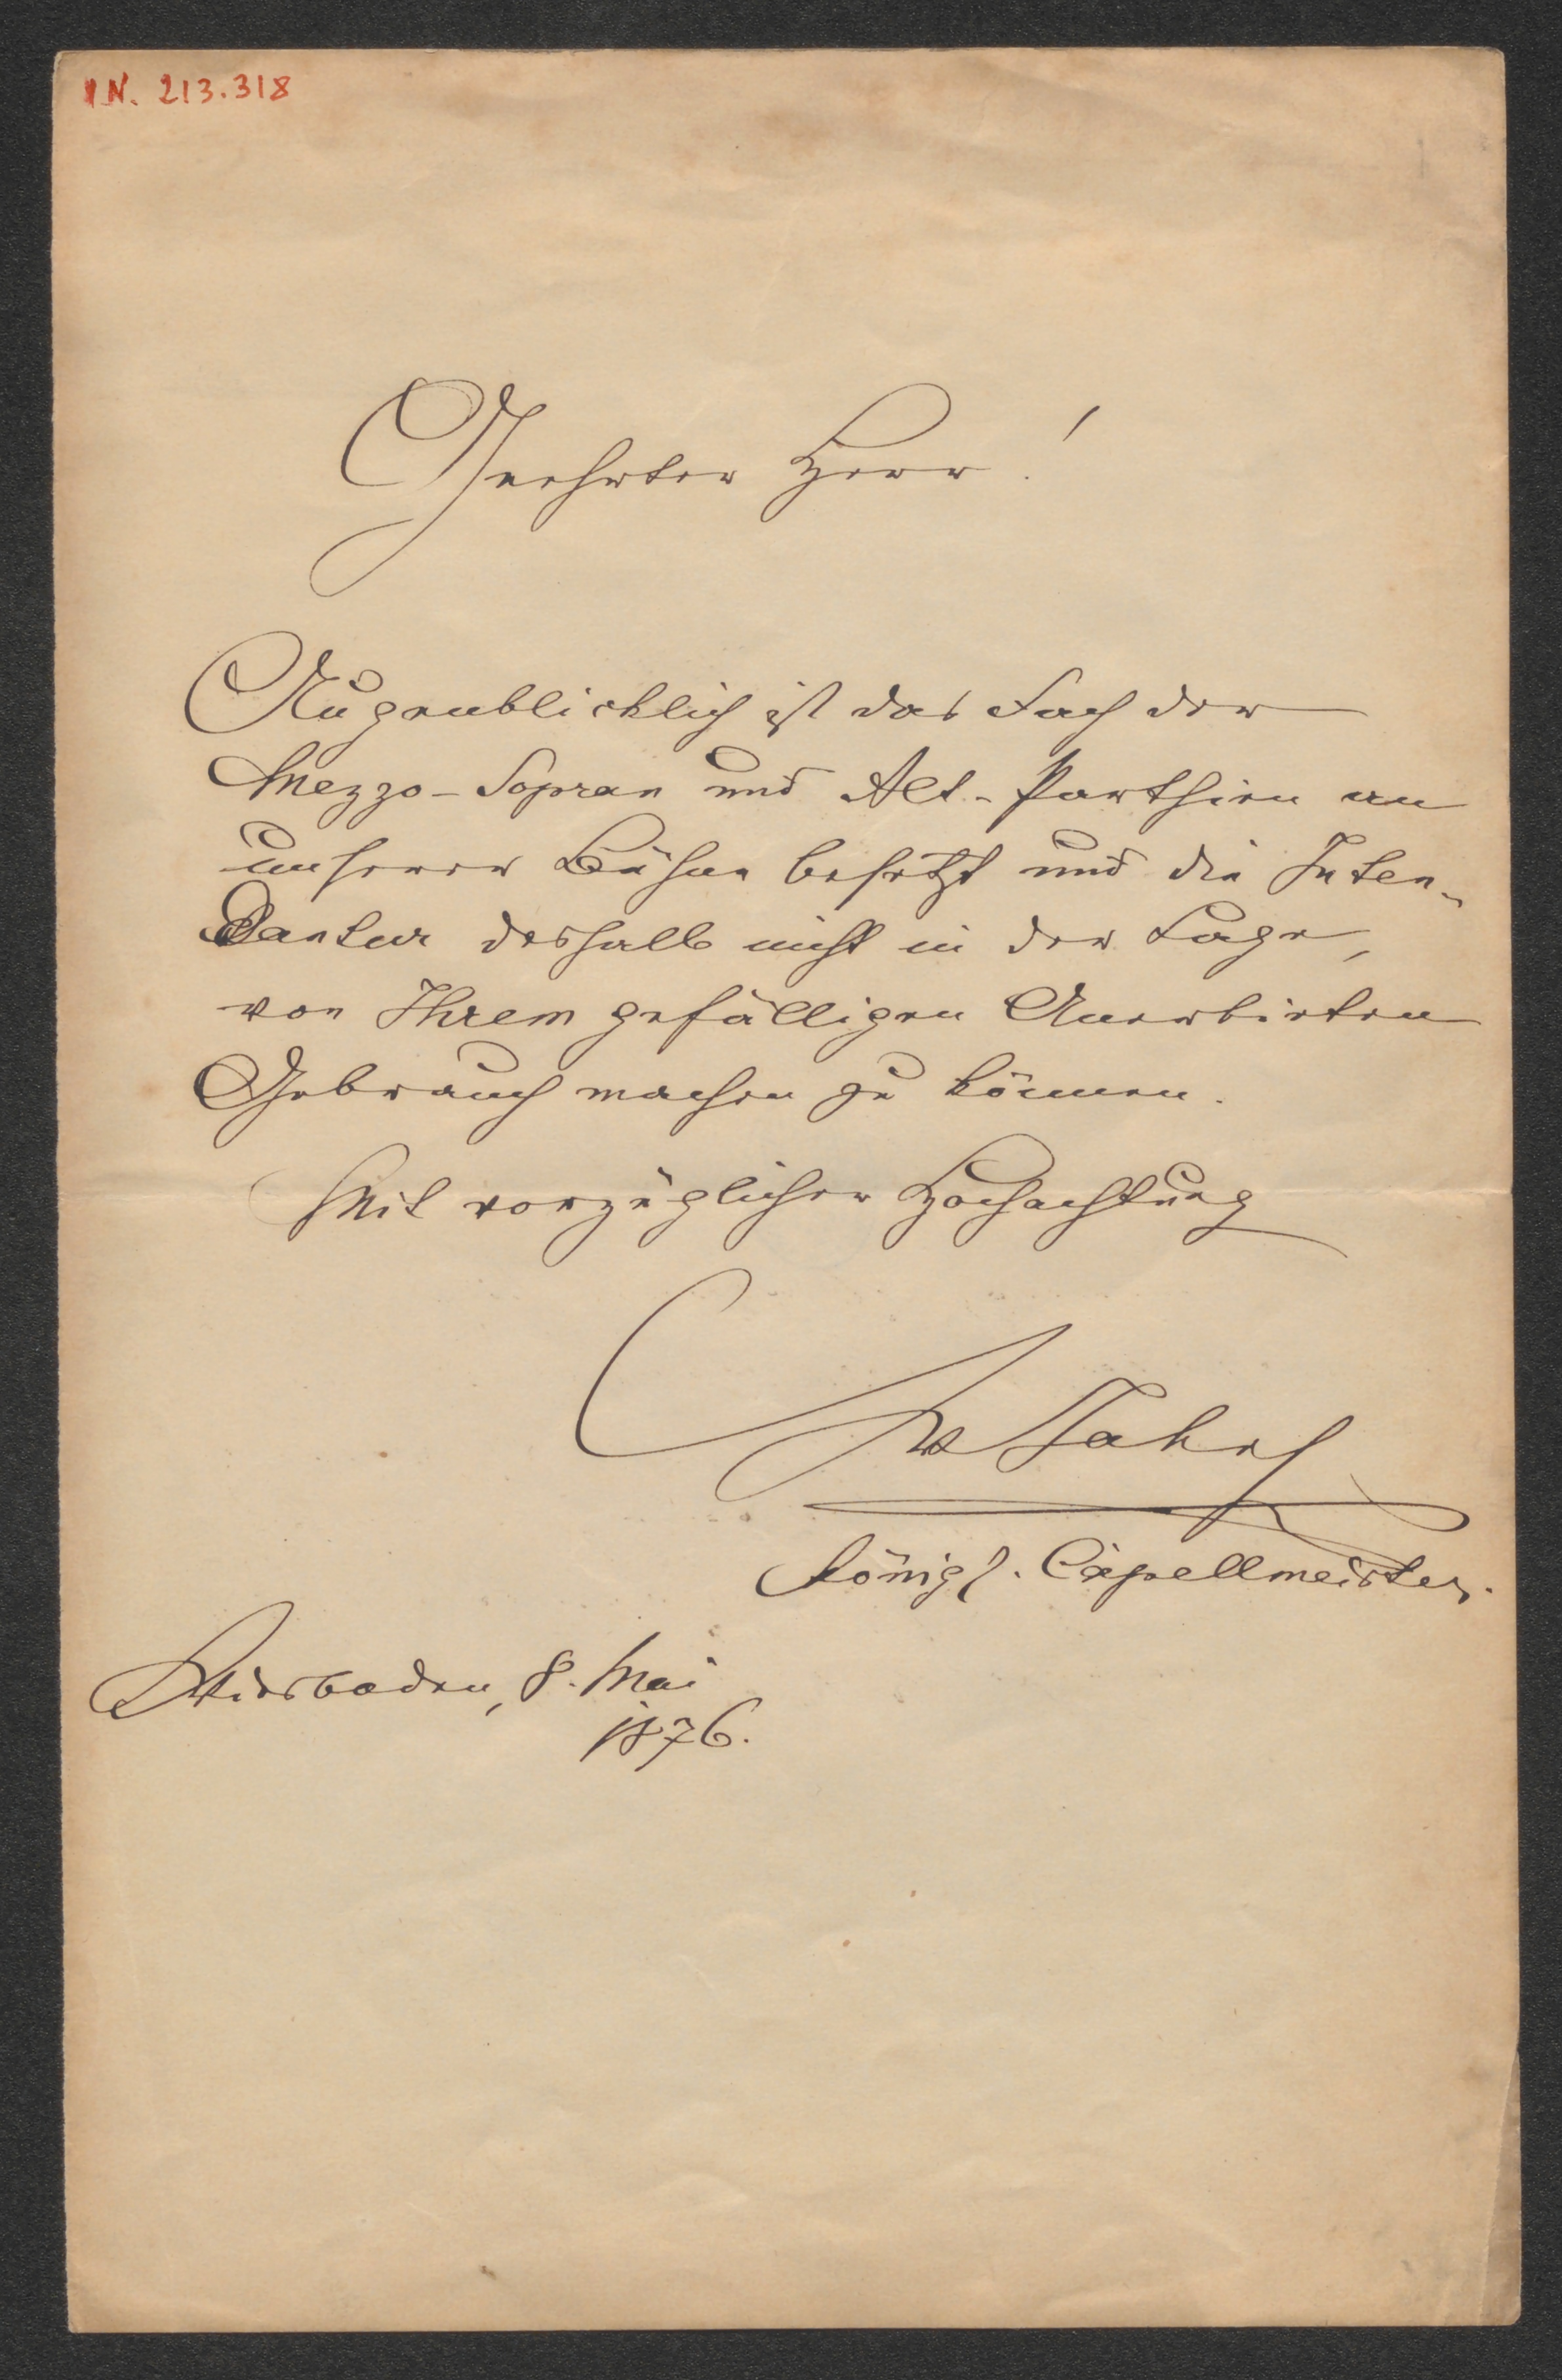 I.N. 213.318
Geehrter Herr!
Augenblicklich ist das Fach der
Mezzo-Sopran und Alt-Parthien an
unserer Bühne besetzt und die Inten-
dantur deshalb nicht in der Lage,
von Ihrem gefälligen Anerbieten
Gebrauch machen zu können.
Mit vorzüglicher Hochachtung
W Jahn
Königl. Capellmeister.
Wiesbaden, 8. Mai
1876.